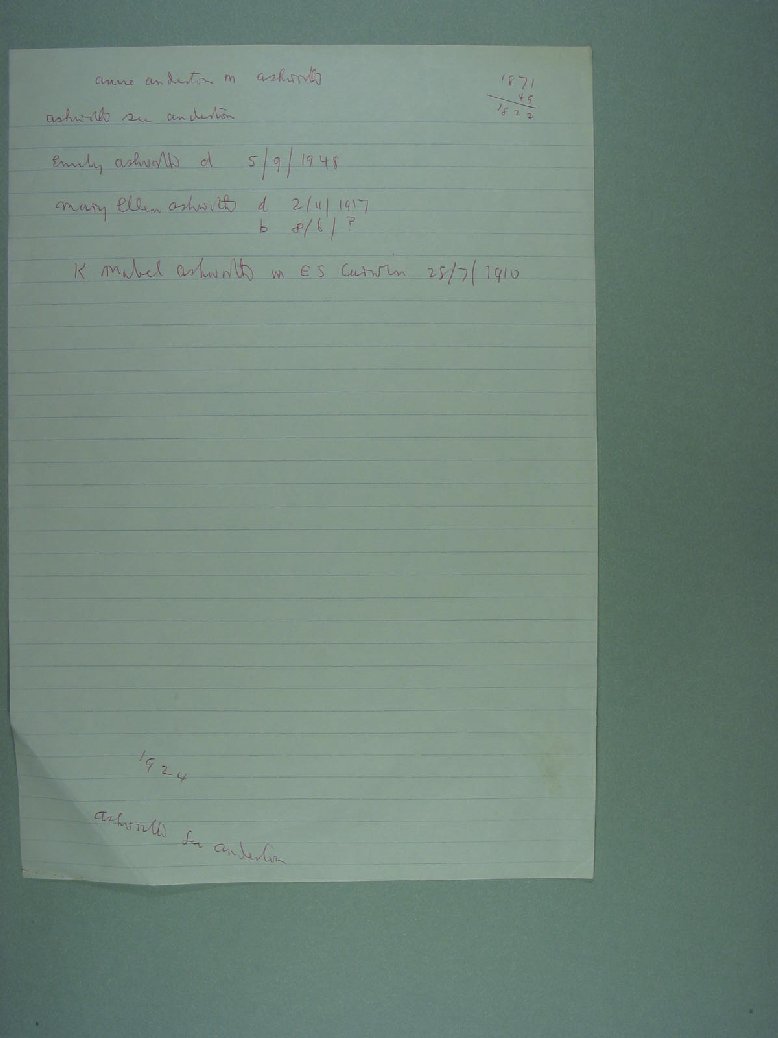 anne anderton m ashworth
1871
49
1822
ashworth see anderton
Emily ashworth d 5/9/1948
mary Ellen ashworth d 2/11/1917
b 8/6/ ?
K mabel ashworth m E S Curwin 25/7/1910
1924
ashworth see anderton